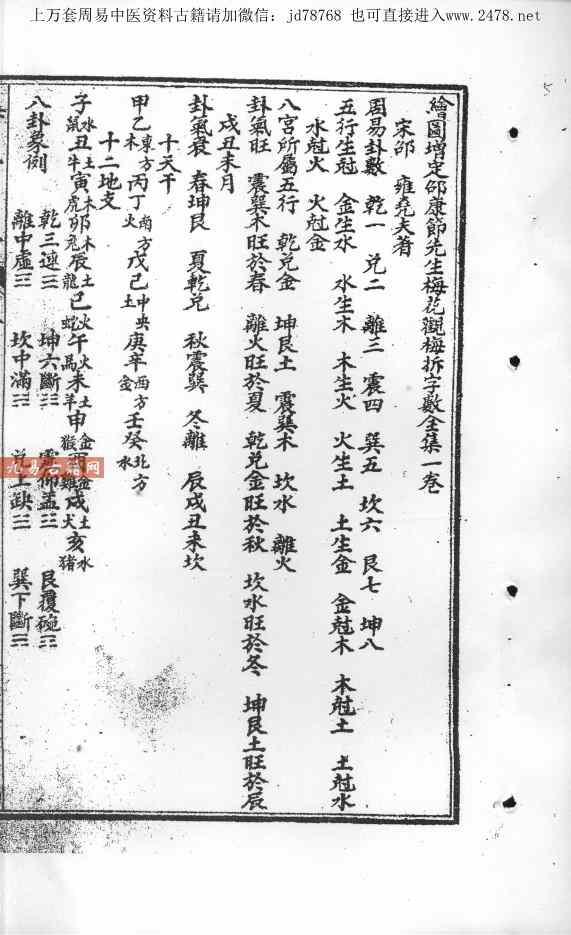 上万套周易中医资料古籍请加微信：jd78768 也可直接进入www.2478.net
繪圖增定邵康節先生梅花觀梅拆字數全集一卷
宋邵 雍堯夫著
周易卦數 乾一 兌二 離三 震四 巽五 坎六 艮七 坤八
五行生尅 金生水 水生木 木生火 火生土 土生金 金尅木 木尅土 土尅水
水尅火 火尅金
八宮所屬五行 乾兌金 坤艮土 震巽木 坎水 離火
卦氣旺 震巽木旺於春 離火旺於夏 乾兌金旺於秋 坎水旺於冬 坤艮土旺於辰
戌丑未月
卦氣衰 春坤艮 夏乾兌 秋震巽 冬離 辰戌丑未坎
十天干
甲乙東方木 丙丁南方火 戊己中央土 庚辛西方金 壬癸北方水
十二地支
子水鼠 丑土牛 寅木虎 卯木兔 辰土龍 巳火蛇 午火馬 未土羊 申金猴 酉金雞 戌土犬 亥水豬
八卦象例 乾三連☰ 坤六斷☷ 震仰盂☳ 艮覆碗☶
離中虛☲ 坎中滿☵ 兌上缺☱ 巽下斷☴
九易古籍网